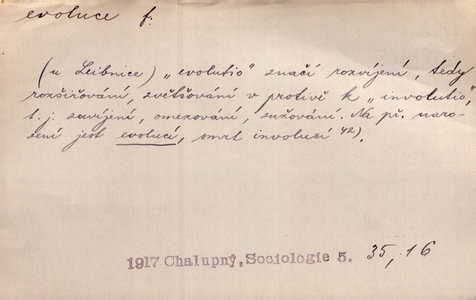 evoluce f.
(u Leibnice) „evolutio" značí rozvíjení, tedy
rozšiřování, zvětšování v protivě k „involutio"
t. j. zavíjení, omezování, zužování. Na př. naro-
zení jest evolucí, smrt involucí 42).
1917 Chalupný, Sociologie 5. 35, 16